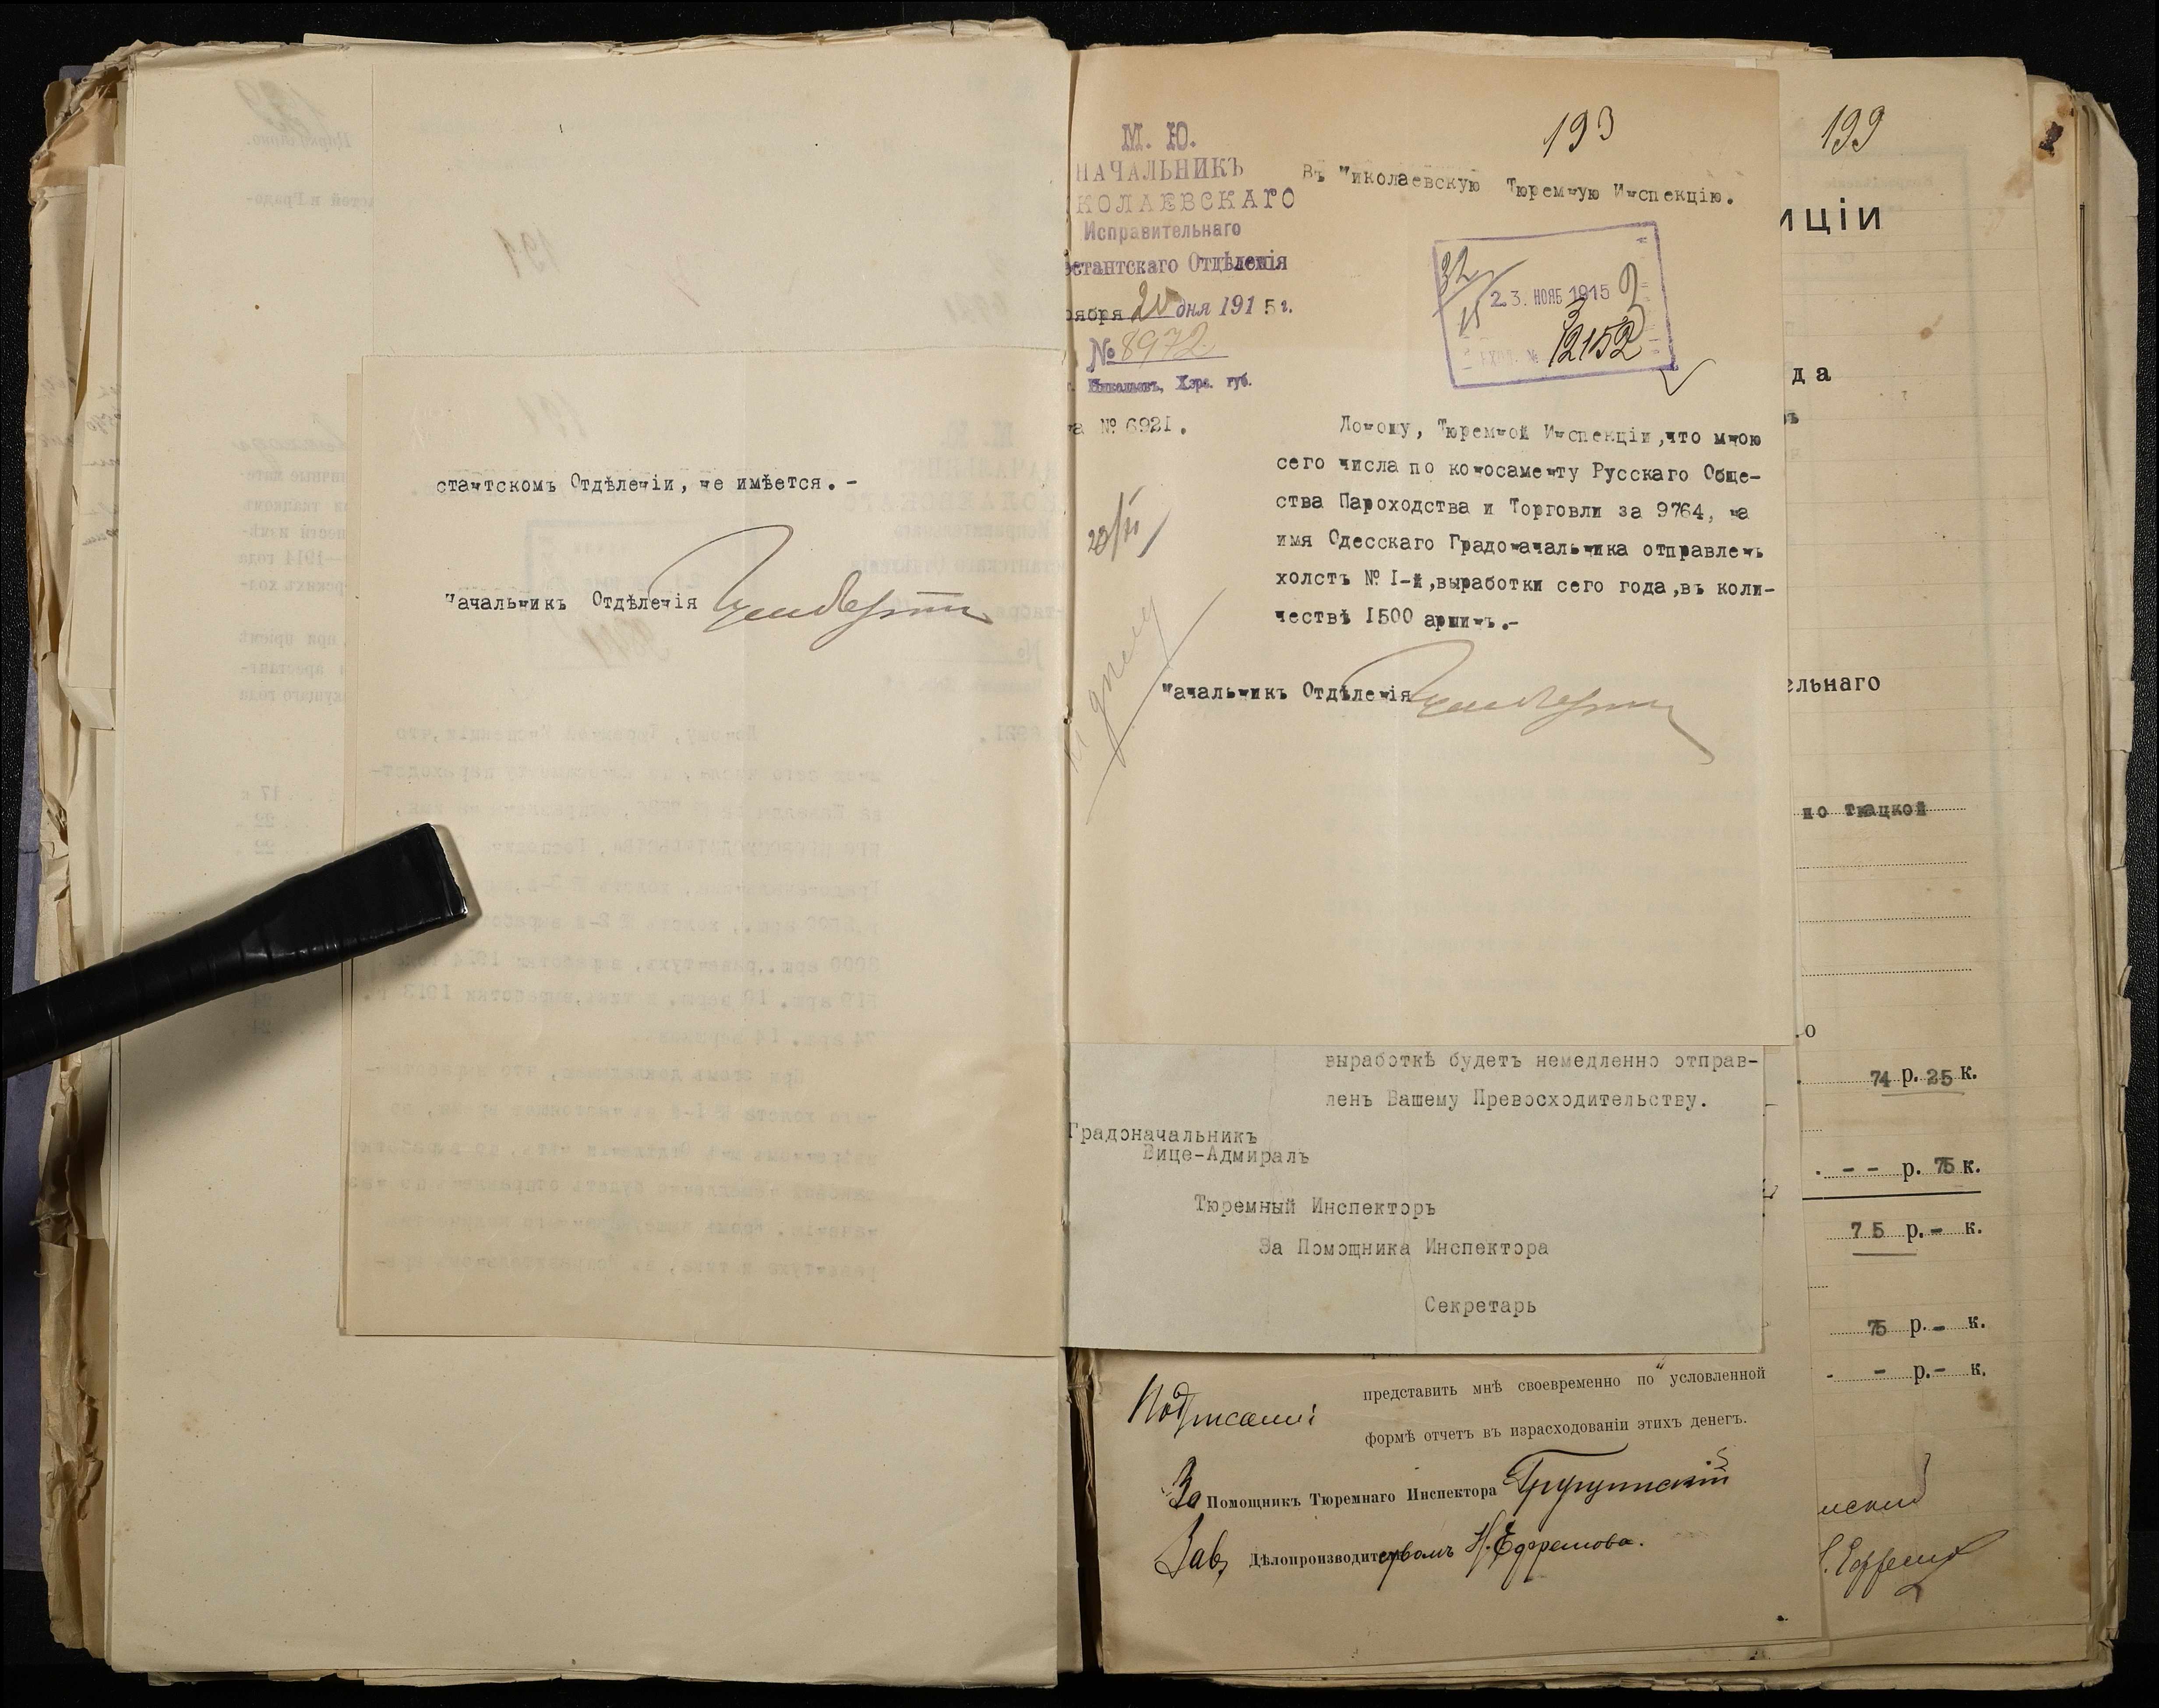 стантскомъ Отдѣленіи, не имѣется.-
Начальникъ Отдѣленія
193
М. Ю.
НАЧАЛЬНИКЪ
КОЛАЕВСКАГО
Исправительнаго
естантскаго Отдѣленія
оября 20 дня 1915 г.
№ 8972
Николаевъ, Хэрс. губ.
на № 6921.
Въ Николаевскую Тюремную Инспекцію.
23. НОЯБ 1915
ВХОД. № 12152
Доношу, Тюремной Инспекціи, что мною
сего числа по коносаменту Русскаго Обще-
ства Пароходства и Торговли за 9764, на
имя Одесскаго Градоначальника отправленъ
холстъ № I-й, выработки сего года, въ коли-
чествѣ 1500 аршинъ.-
Начальникъ Отдѣленія
выработкѣ будетъ немедленно отправ-
ленъ Вашему Превосходительству.
Градоначальникъ
Вице-Адмиралъ
Тюремный Инспекторъ
За Помощника Инспектора
Секретарь
представить мнѣ своевременно по условленной
формѣ отчетъ въ израсходованіи этихъ денегъ.
За Помощникъ Тюремнаго Инспектора
Зав. Дѣлопроизводительствомъ Н. Ефремова.
199
иціи
да
ельнаго
по ткацкой
74 р. 25 к.
- - р. 75 к.
75 р. - к.
75 р. - к.
- - р. - к.